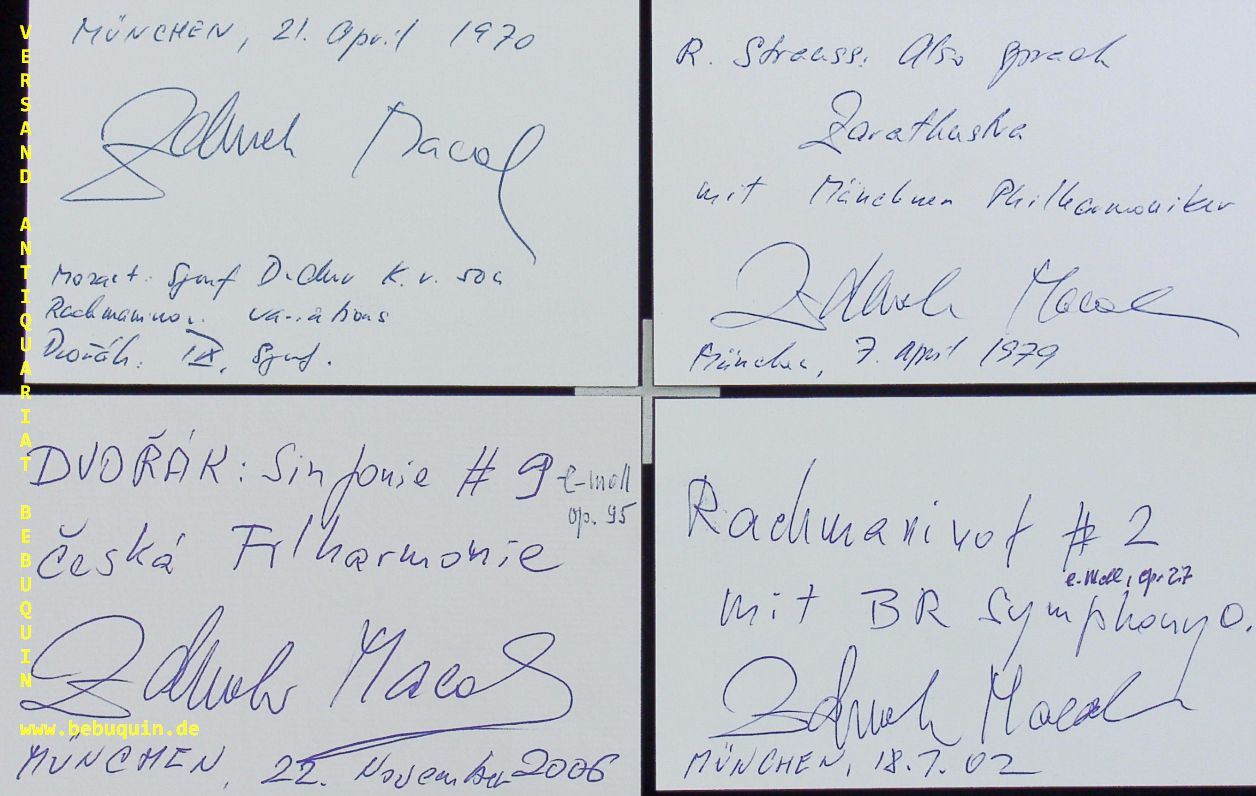 MÜNCHEN, 21. April 1970
Zdenek Macal
Mozart: Symf D-dur K. v. 504
Rachmaninov. variations
Dvořák. IX. Symf.
R. Strauss: Also sprach
Zarathustra
mit Münchner Philharmoniker
Zdenek Macal
München, 7. April 1979
DVOŘÁK: Sinfonie # 9 e-moll
op. 95
Česká Filharmonie
Zdenek Macal
MÜNCHEN, 22. November 2006
Rachmaninof # 2
e-moll, op. 27
mit BR Symphony O.
Zdenek Macal
MÜNCHEN, 18.7.02
VERSAND ANTIQUARIAT BEBUQUIN
www.bebuquin.de